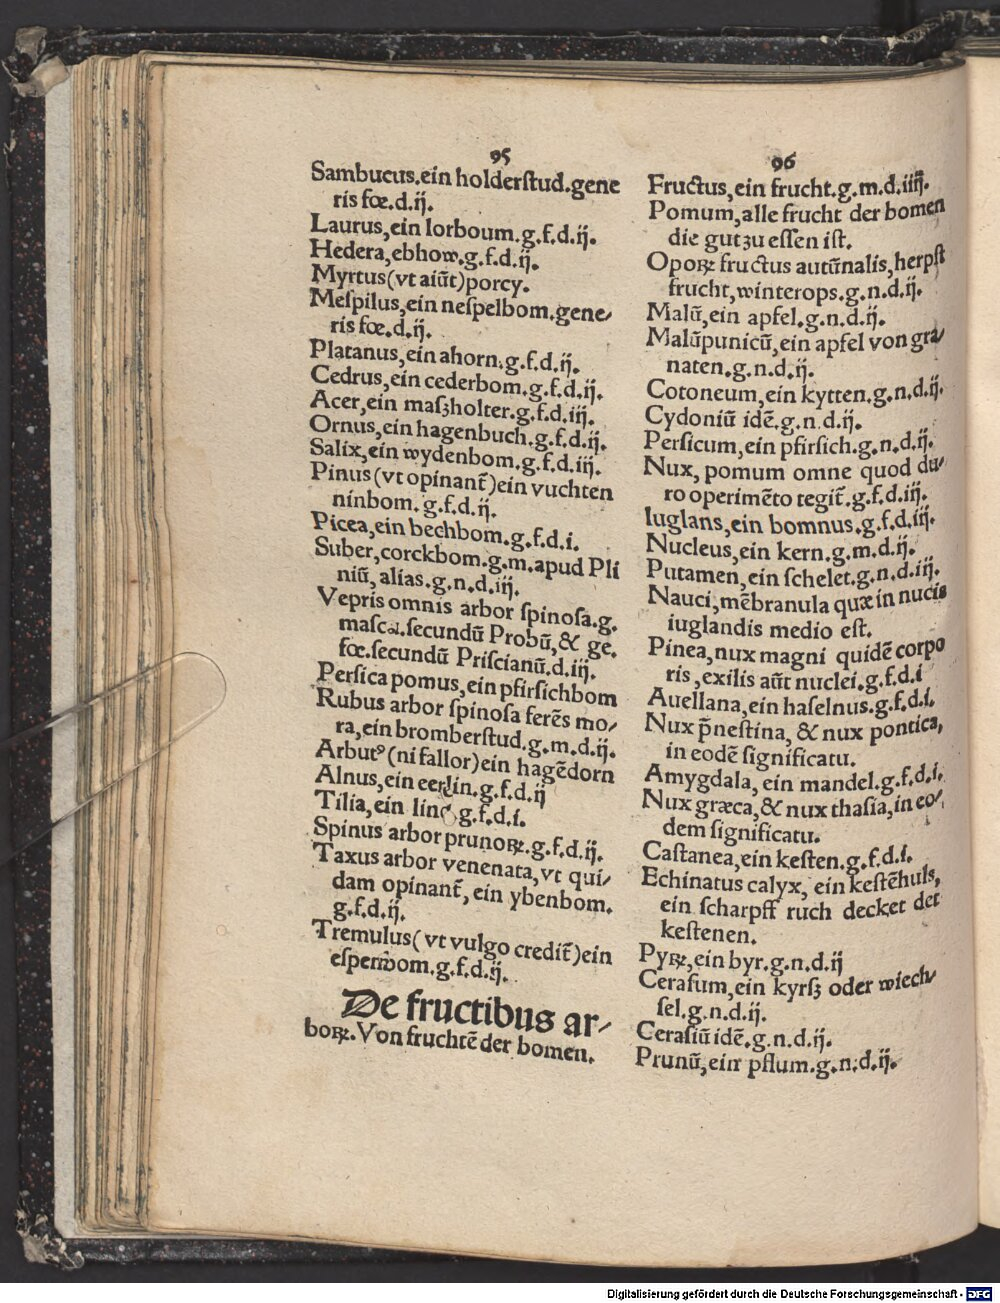 95
Sambucus,ein holderſtud.gene
ris fœ.d.ij.
Laurus,ein lorboum.g.f.d.ij.
Hedera,ebhow.g.f.d.ij.
Myrtus(vt aiūt)porcy.
Meſpilus,ein neſpelbom.gene⸗
ris fœ.d.ij.
Platanus,ein ahorn.g.f.d.ij.
Cedrus,ein cederbom.g.f.d.ij.
Acer,ein maſzholter.g.f.d.iij.
Ornus,ein hagenbuch.g.f.d.ij.
Salix,ein wydenbom.g.f.d.iij.
Pinus(vt opinant̃)ein vuchten
ninbom.g.f.d.ij.
Picea,ein bechbom.g.f.d.i.
Suber,corckbom.g.m.apud Pli
niū,alias.g.n.d.iij.
Vepris omnis arbor ſpinoſa.g.
maſcu.ſecundū Probū,& ge.
fœ.ſecundū Priſcianū.d.iij.
Perſica pomus,ein pfirſichbom
Rubus arbor ſpinoſa ferēs mo⸗
ra,ein bromberſtud.g.m.d.ij.
Arbutꝰ(ni fallor)ein hagēdorn
Alnus,ein eerlin.g.f.d.ij
Tilia,ein lind g.f.d.i.
Spinus arbor prunoꝝ.g.f.d.ij.
Taxus arbor venenata,vt qui⸗
dam opinant̃,ein ybenbom.
g.f.d.ij.
Tremulus(vt vulgo credit̃)ein
eſpenbom.g.f.d.ij.
De fructibus ar⸗
boꝝ.Von fruchtē der bomen.
96
Fructus,ein frucht.g.m.d.iiij.
Pomum,alle frucht der bomen
die gut zu eſſen iſt.
Opoꝝ fructus autūnalis,herpſt
frucht,winterops.g.n.d.ij.
Malū,ein apfel.g.n.d.ij.
Malūpunicū,ein apfel von gra⸗
naten.g.n.d.ij.
Cotoneum,ein kytten.g.n.d.ij.
Cydoniū idē.g.n.d.ij.
Perſicum,ein pfirſich.g.n.d.ij.
Nux,pomum omne quod du⸗
ro operimēto tegit̃.g.f.d.iij.
Iuglans,ein bomnus.g.f.d.iij.
Nucleus,ein kern.g.m.d.ij.
Putamen,ein ſchelet.g.n.d.iij.
Nauci,mēbranula quæ in nucis
iuglandis medio eſt.
Pinea,nux magni quidē corpo
ris,exilis aūt nuclei.g.f.d.i
Auellana,ein haſelnus.g.f.d.i.
Nux p̄neſtina,& nux pontica,
in eodē ſignificatu.
Amygdala,ein mandel.g.f.d.i.
Nux græca,& nux thaſia,in eo⸗
dem ſignificatu.
Caſtanea,ein keſten.g.f.d.i.
Echinatus calyx,ein keſtēhuls,
ein ſcharpff ruch decket der
keſtenen.
Pyꝝ,ein byr.g.n.d.ij
Ceraſum,ein kyrſz oder wiech⸗
ſel.g.n.d.ij.
Ceraſiū idē.g.n.d.ij.
Prunū,ein pflum.g.n.d.ij.
Digitalisierung gefördert durch die Deutsche Forschungsgemeinschaft - DFG